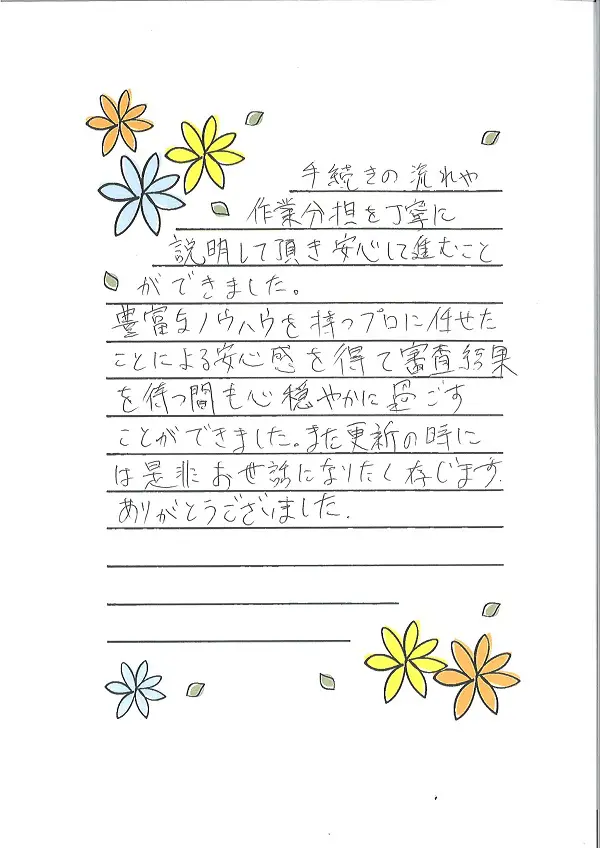 手続きの流れや
作業分担を丁寧に
説明して頂き安心して進むこと
ができました。
豊富なノウハウを持つプロに任せた
ことによる安心感を得て審査結果
を待つ間も心穏やかに過ごす
ことができました。また更新の時に
は是非お世話になりたく存じます.
ありがとうございました.